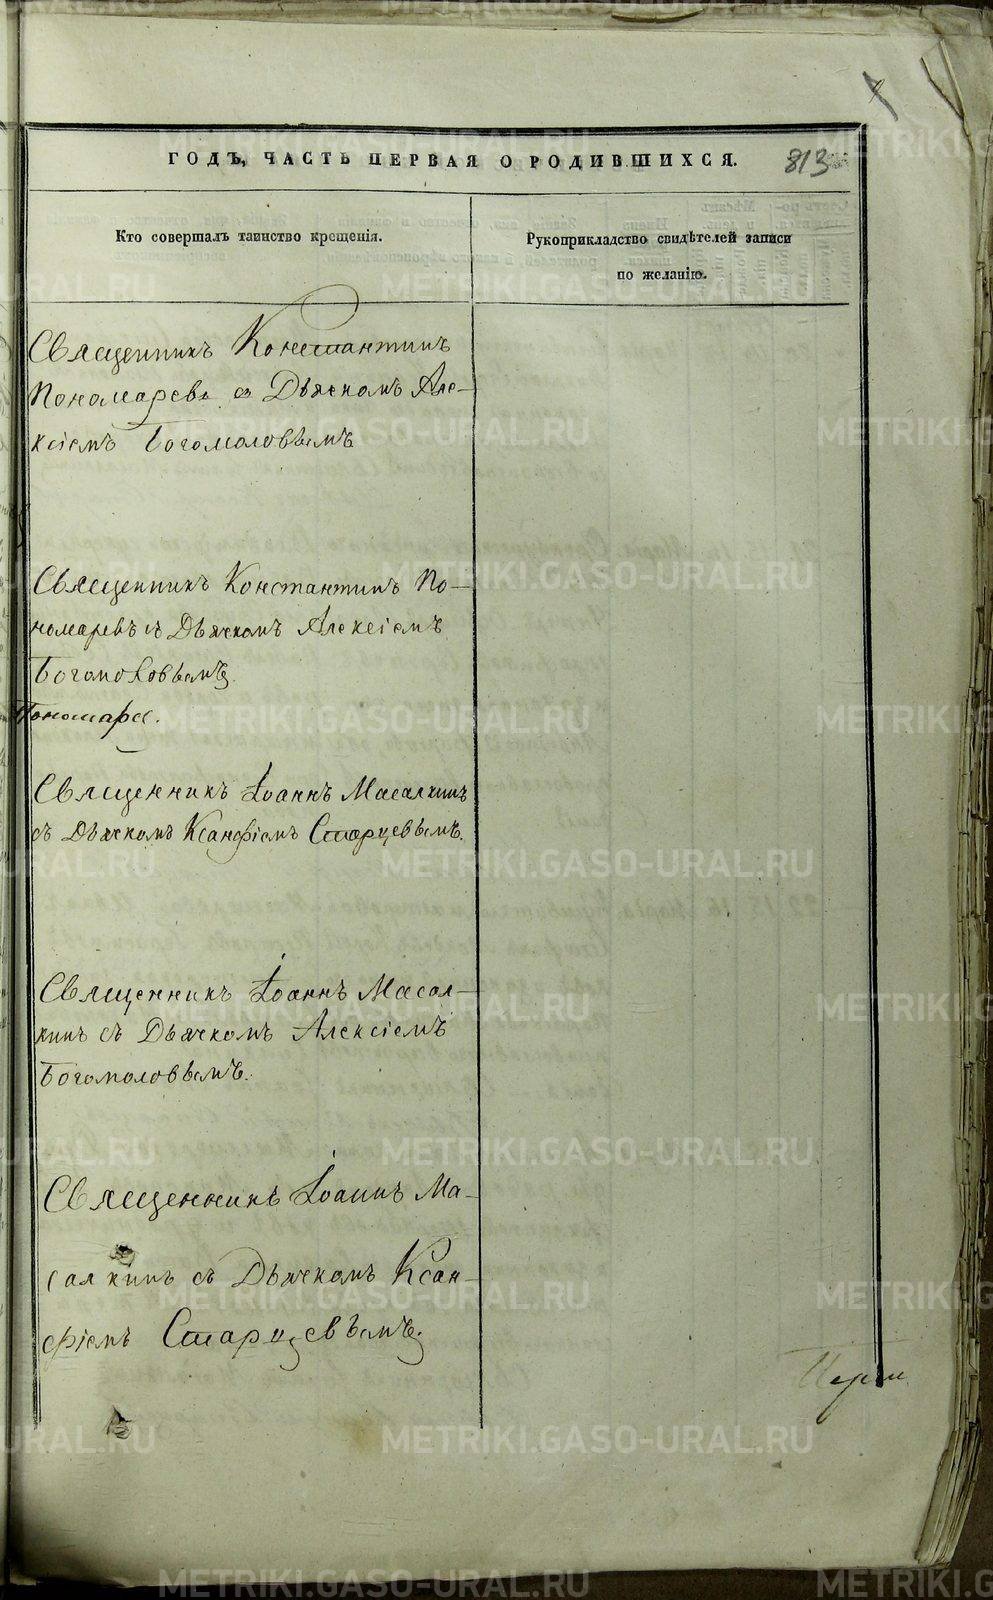 ГОДЪ, ЧАСТЬ ПЕРВАЯ О РОДИВШИХСЯ.
813
Кто совершалъ таинство крещенія.
Рукоприкладство свидѣтелей записи
по желанію.
Священникъ Константинъ
Пономаревъ съ Дьячкомъ Але-
ксіемъ Богомоловымъ
Священникъ Константинъ По-
номаревъ съ Дьячкомъ Алексіемъ
Богомоловымъ
Священникъ Іоаннъ Масалкинъ
съ Дьячкомъ Ксанфіемъ Старцевымъ.
Священникъ Іоаннъ Масал-
кинъ съ Дьячкомъ Алексіемъ
Богомоловымъ.
Священникъ Іоаннъ Ма-
салкинъ съ Дьячкомъ Ксан-
фіемъ Старцевымъ.
METRIKI.GASO-URAL.RU